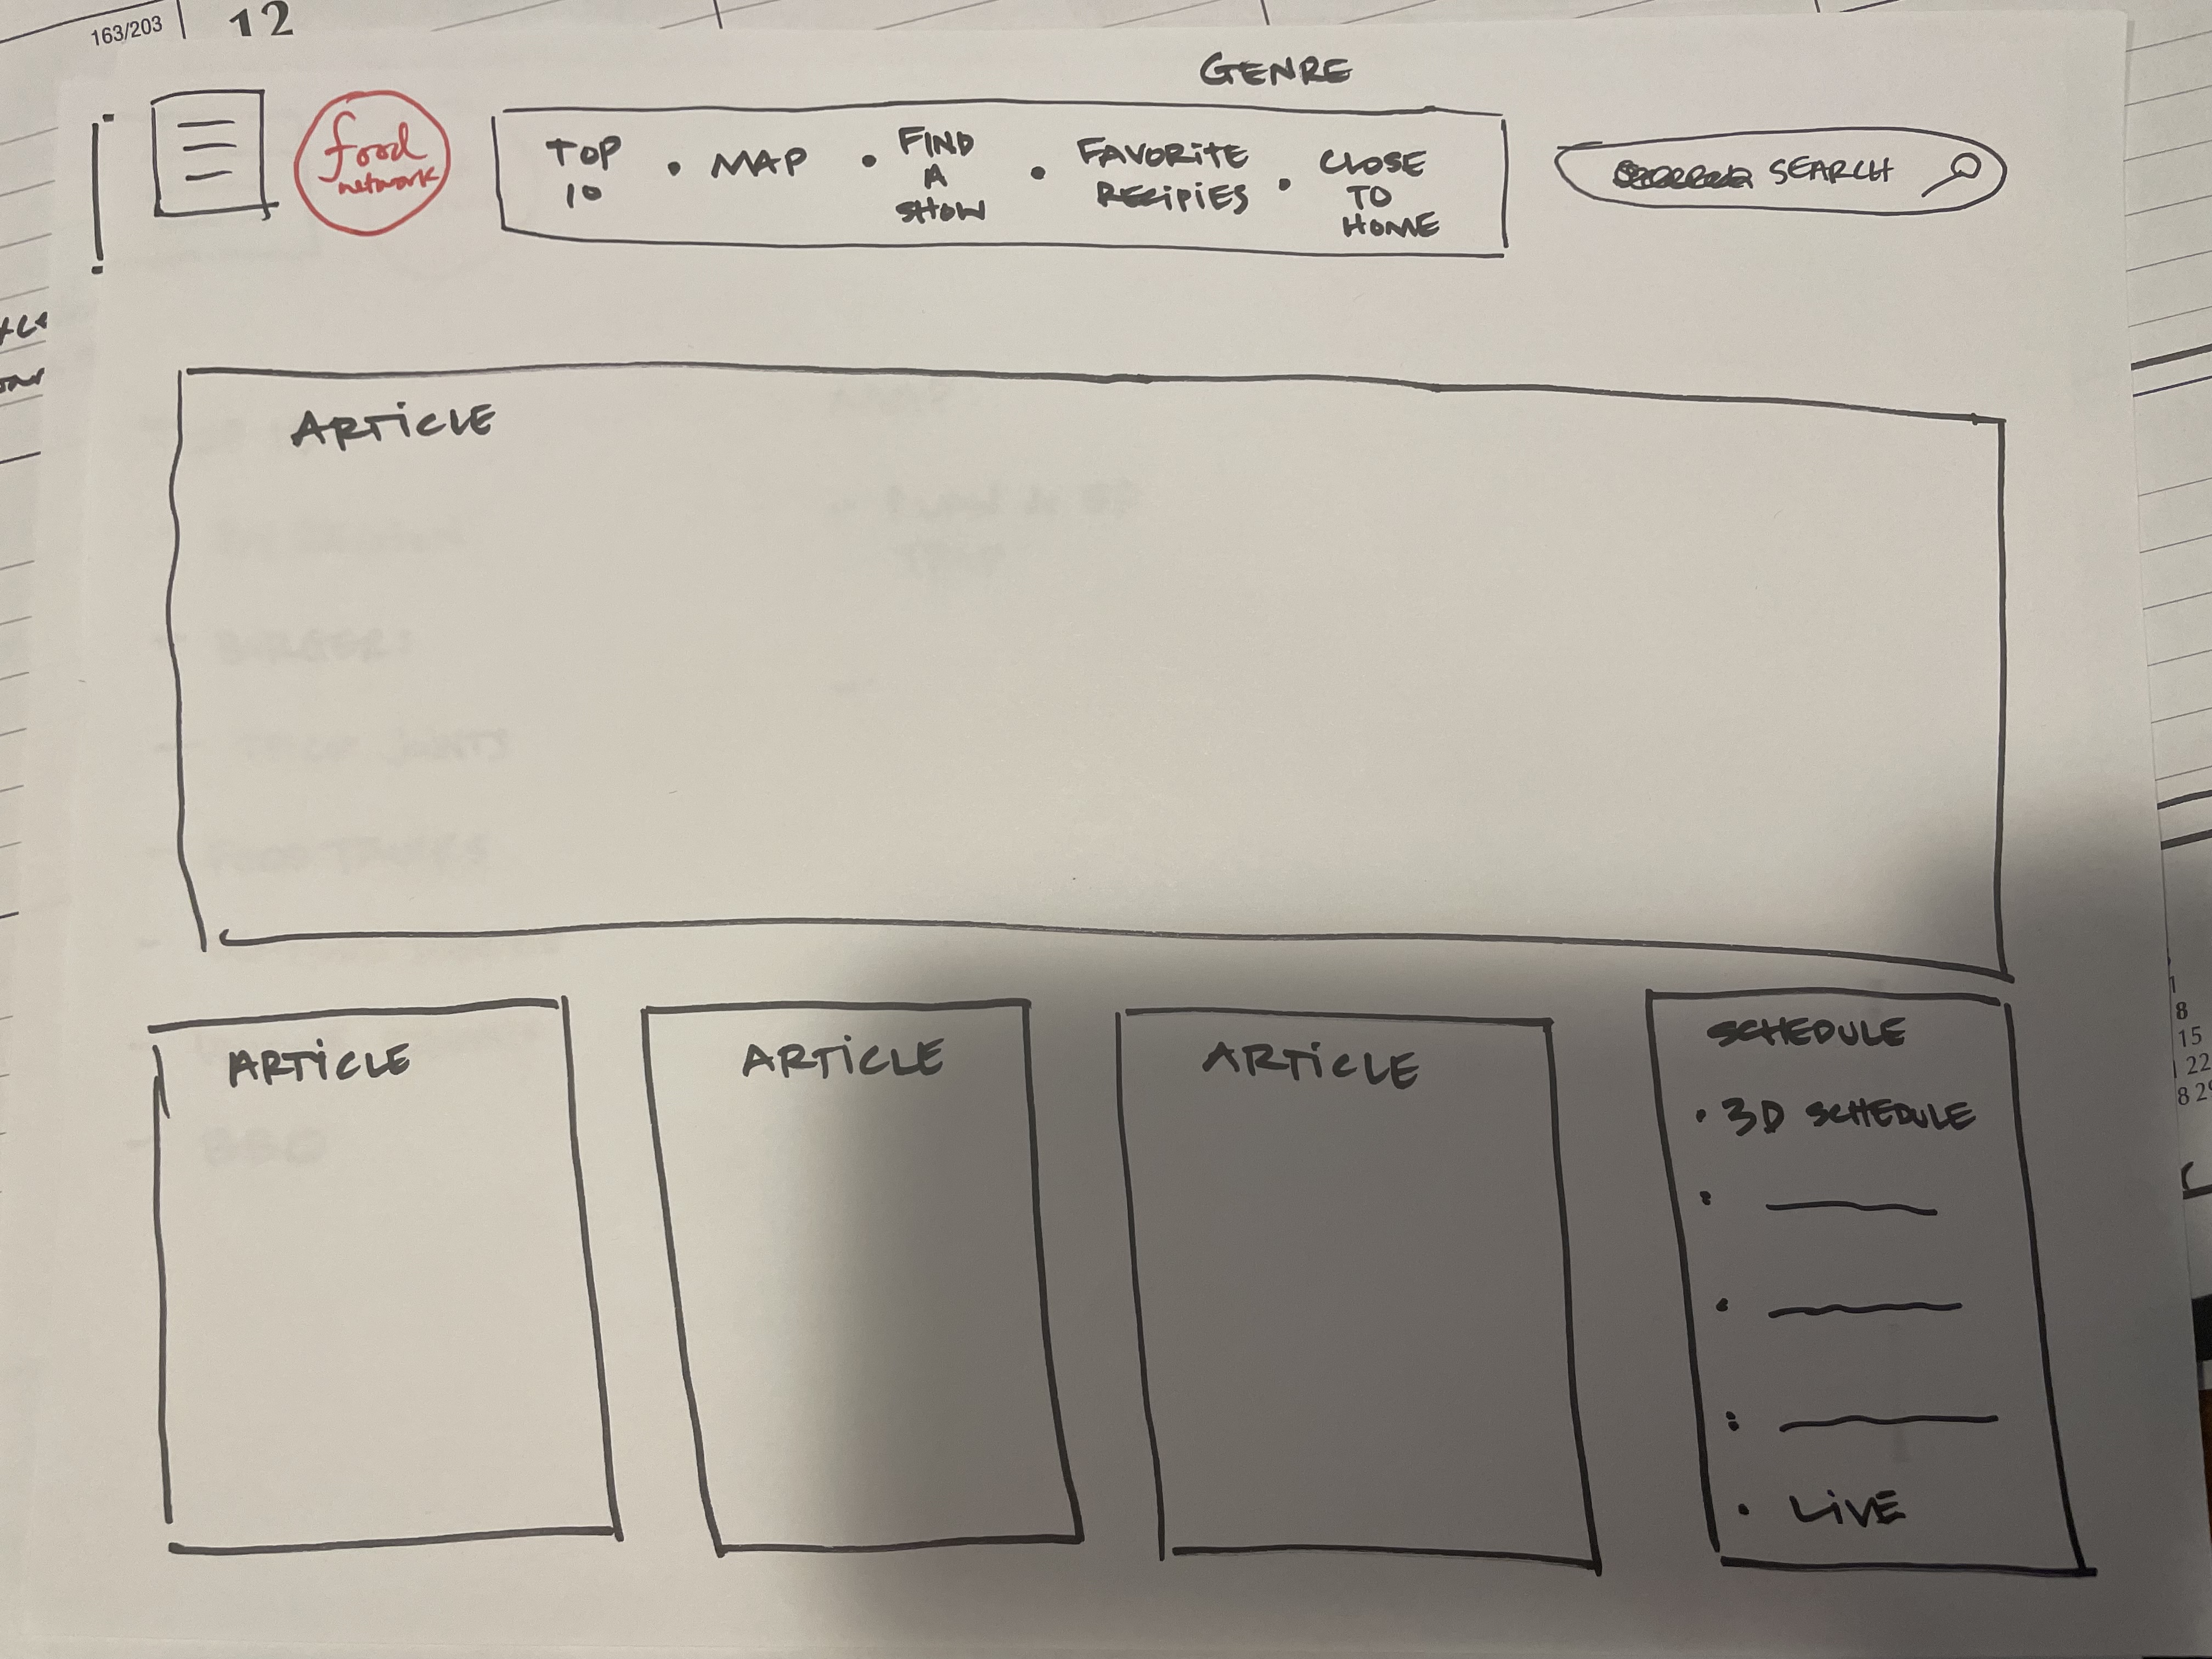 163/203
12
GENRE
food
network
TOP
10
• MAP
• FIND
A
SHOW
• FAVORITE
RECIPIES
• CLOSE
TO
HOME
SEARCH
ARTICLE
ARTICLE
ARTICLE
ARTICLE
SCHEDULE
• 3D SCHEDULE
• LIVE
8
15
22